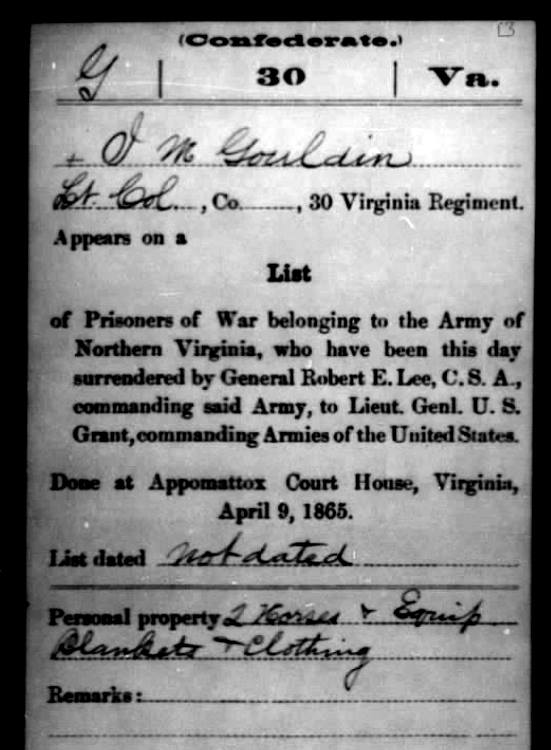 13
(Confederate.)
G | 30 | Va.
+ J M Gouldin
Lt. Col , Co. , 30 Virginia Regiment.
Appears on a
List
of Prisoners of War belonging to the Army of
Northern Virginia, who have been this day
surrendered by General Robert E. Lee, C. S. A.,
commanding said Army, to Lieut. Genl. U. S.
Grant, commanding Armies of the United States.
Done at Appomattox Court House, Virginia,
April 9, 1865.
List dated not dated
Personal property 2 Horses & Equip
Blankets & Clothing
Remarks: